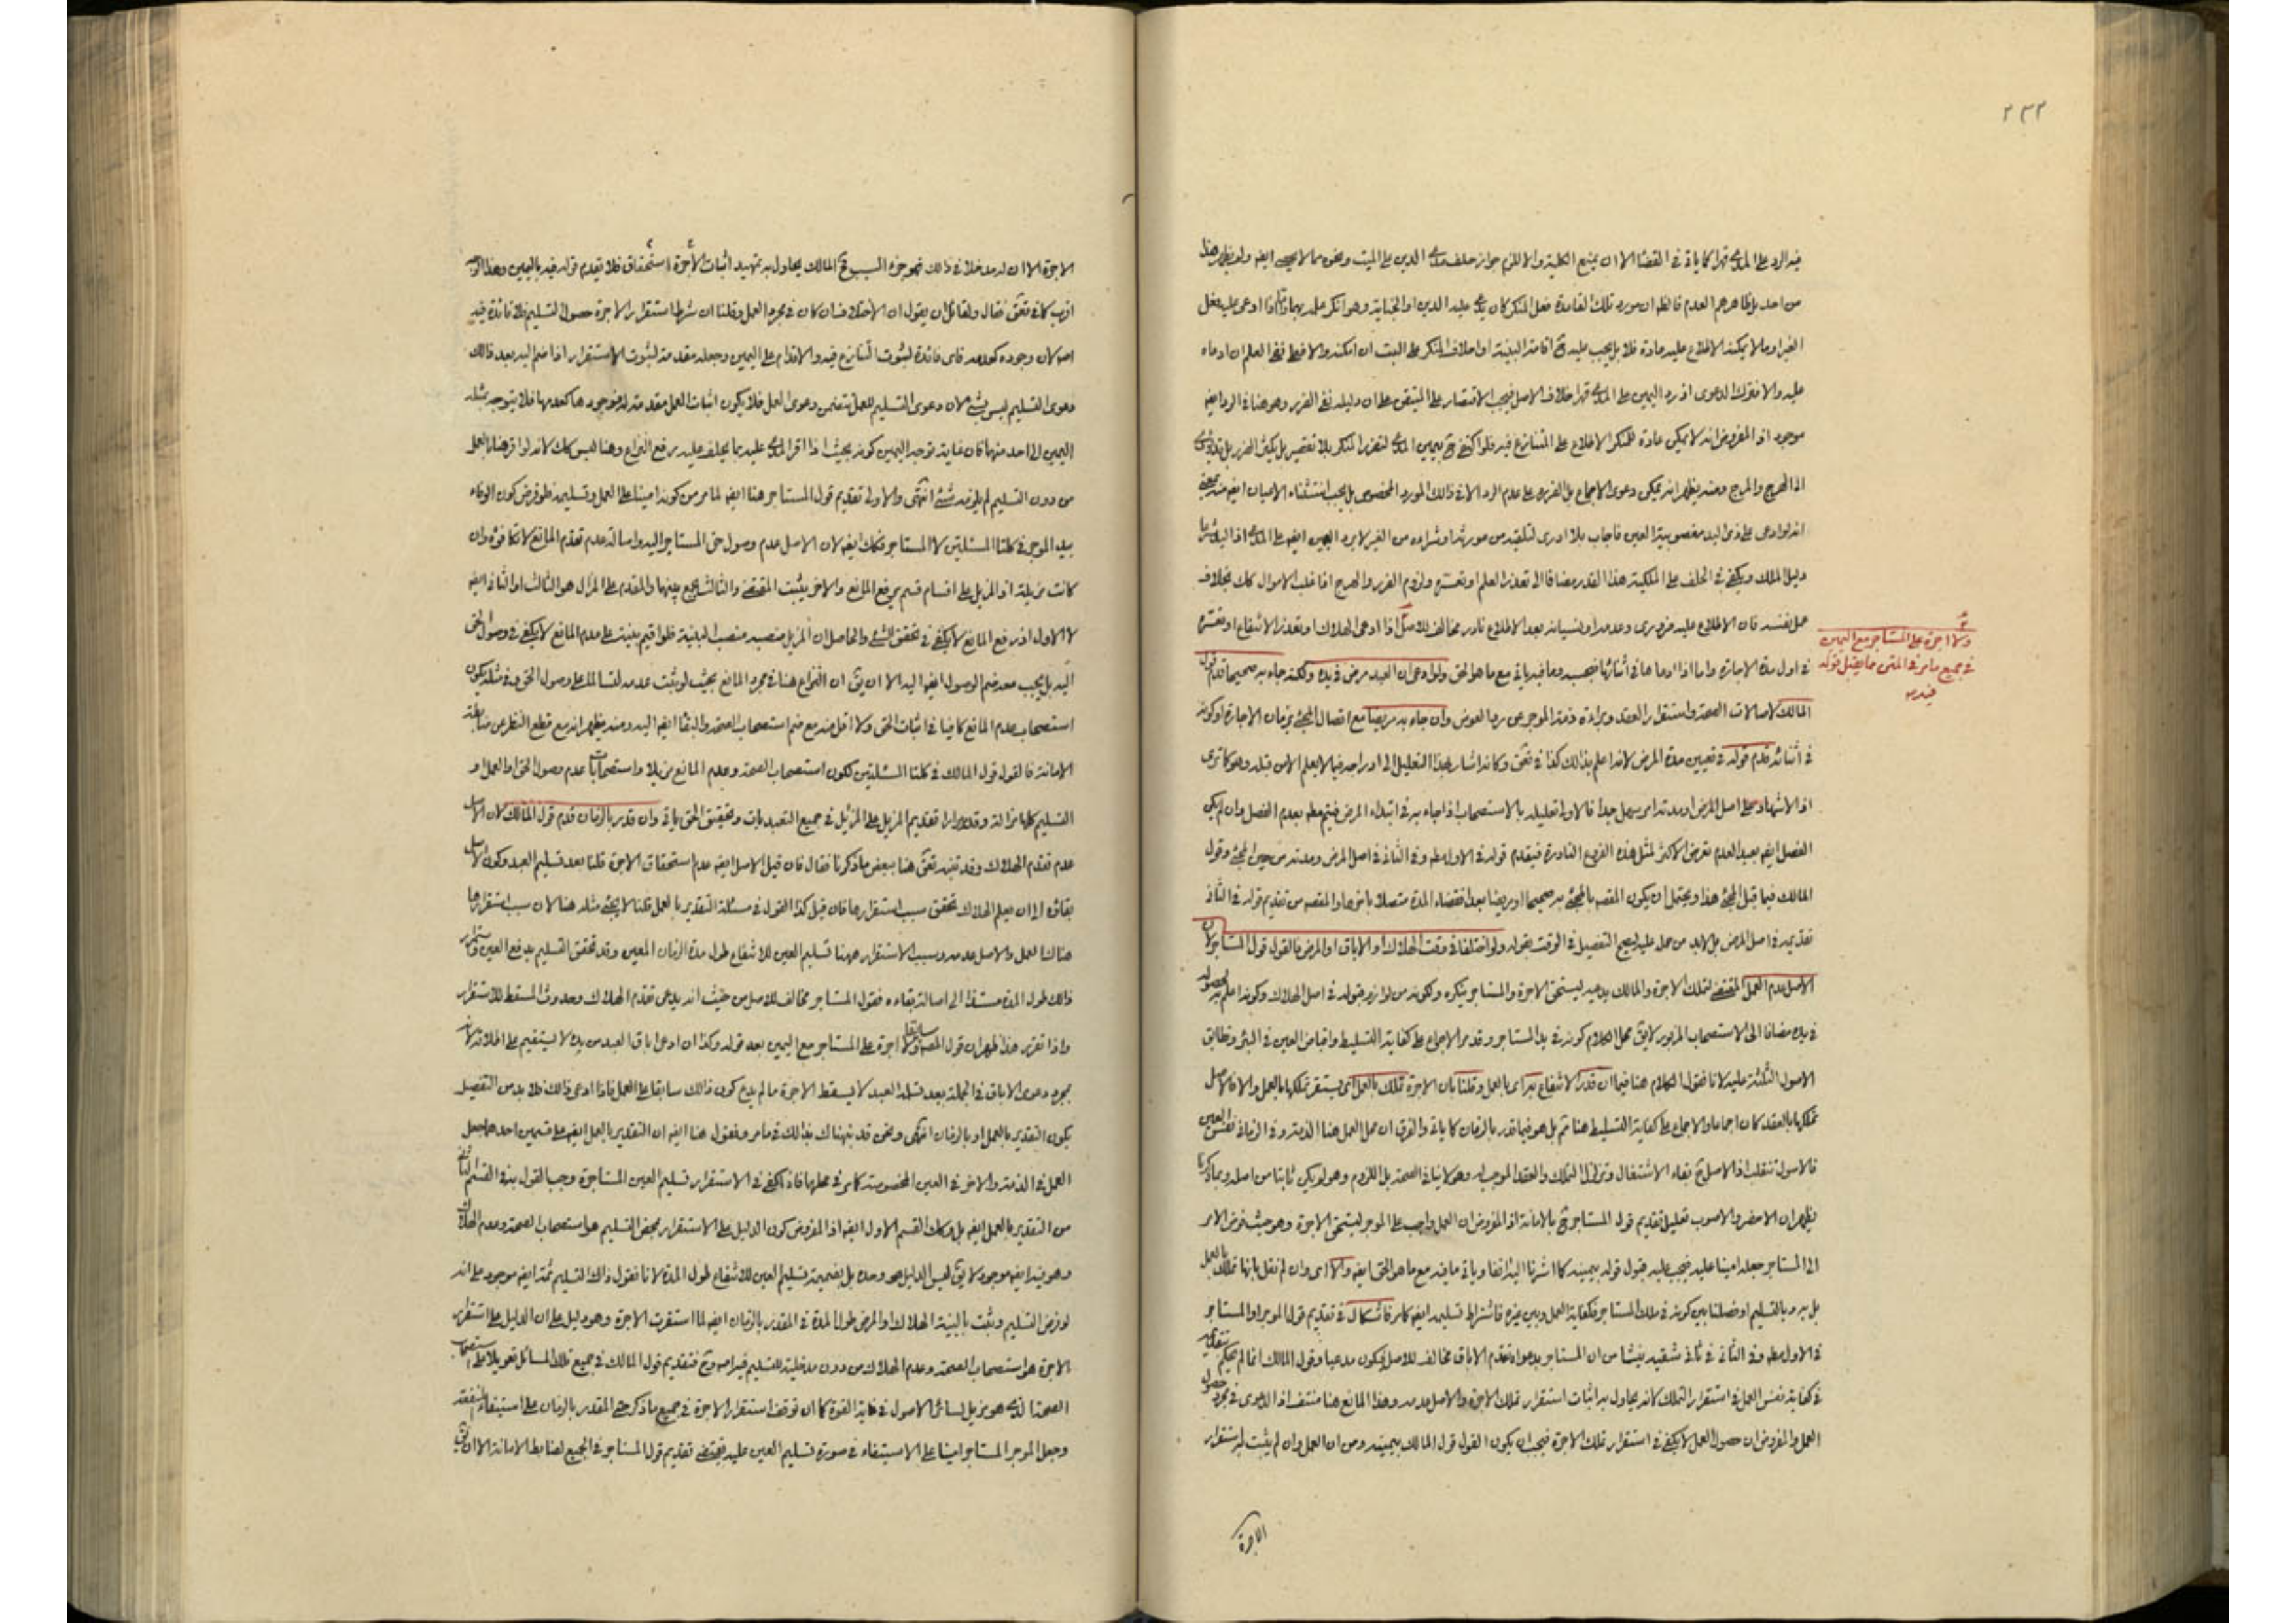 ٢٣٢
فيه الرد على المدعي قهرا كما ياتي في القضا الا ان يمنع الكلية والا للزم جواز حلف مدعي الدين على الميت ونحوه مما لا يحصى ايضه ولم يظهر هذا
من احد بل ظاهرهم العدم فالظه ان مورد تلك القاعدة فعل المنكر كان يدعى عليه الدين او الجناية وهو انكر علمه بهما واذا ادعى عليه فعل
الغير او ما لا يمكنه الاطلاع عليه عادة فلا بل يجب عليه ح اقامة البينة او احلاف المنكر على البت ان امكنه والا فعلى نفى العلم ان ادعاه
عليه والا فقوله الدعوى اذ رد اليمين على المدعي قهرا خلاف الاصل فيجب الاقتصار على المتيقن على ان دليله نفى الضرر وهو هنا في الرد ايضه
موجود اذ المفروض انه لا يمكن عادة للمنكر الاطلاع على المتنازع فيه فلو اكتفى ح بيمين المدعي لتضرر المنكر بلا تقصير بل يكثر الضرر بل
الى الهرج والمرج ومنه يظهر انه يمكن دعوى الاجماع بل الضرورة على عدم الرد الا في ذلك المورد المخصوص بل يجب استثناء الاعيان ايضه منه
انه لو ادعى على ذي اليد مغصوبية العين فاجاب بلا ادري لتلقيه من مورثه او شراءه من الغير لا يرد اليمين ايضه على المدعي اذ اليد
دليل الملك ويكفي في الحلف على الملكية هذا القدر مضافا الى تعذر العلم او تعسره ولزوم الضرر والحرج اذ اغلب الاموال كك بخلاف
عمل نفسه فان الاطلاع عليه ضروري وعدمه او نسيانه بعد الاطلاع نادر مخالف للاصل اذا ادعى الهلاك او تعذر الانتفاع او تعسره
ولا اجرة على المستاجر مع اليمين
في جميع ما مر في المتن مما يقبل قوله
فيه
في اول مدة الاجارة واما اذا ادعاها في اثنائها فبحسبه وما فيه ياتي مع ما هو الحق ولو ادعى ان العبد مرض في يده ولكنه جاء به صحيحا قدم قول
المالك لاصالة الصحة واستقرار العقد وبراءة ذمة الموجر عن رد العوض وان جاء به مريضا مع اتصال المجئ بزمان الاجارة او كونه
في اثنائه قدم قوله في تعيين مدة المرض لانه اعلم بذلك كذا في تعق وكانه اشار بهذا التعليل الى ادراجه فيما لا يعلم الا من قبله وهو كما ترى
اذ الاشهاد على اصل المرض او مدته امر سهل جدا فالاولى تعليله بالاستصحاب اذا جاء به في ابتداء المرض فيتم مطه بعدم الفصل وان لم يكن
الفصل ايضه بعيد العدم تعرض الاكثر لمثل هذه الفروع النادرة فيقدم قوله في الاول مطه وفي الثاني في اصل المرض ومدته من حين المجئ وقول
المالك فيما قبل المجئ هذا ويحتمل ان يكون المقصه بالمجئ به صحيحا او مريضا بعد انقضاء المدة متصلا باخرها والمقصه من تقديم قوله في الثاني
تقديمه في اصل المرض بل لابد من حمله عليه ليصح التفصيل في الوقت بقوله ولو اختلفا في وقت الهلاك او الاباق او المرض فالقول قول المستاجر لان
الاصل عدم العمل المقتضى لتملك الاجرة والمالك يدعيه ليستحق الاجرة والمستاجر ينكره ولكونه من لوازم قبول قوله في اصل الهلاك وكونه اعلم به لحصوله
في يده مضافا الى الاستصحاب المزبور لا يق محل الكلام كونه في يد المستاجر وقد مر الاجماع على كفاية التسليط واقباض العين في البئر وتطابق
الاصول الثلثة عليه لانا نقول الكلام هنا فيما ان قدر الانتفاع به اي بالعمل وقلنا بان الاجرة تملك بالعمل اي يستقر تملكها بالعمل والا فالاصل
تملكها بالعقد كما ان اجماعا والاجماع على كفاية التسليط هنا ثم بل هو فيما قدر بالزمان كما ياتي والفرق ان محل العمل هنا الذمة وفي الزماني نفس العين
فالاصول تنقلب اذ الاصل ح بقاء الاشتغال وتزلزل التملك والعقد الموجب له وهو لا ينافي الصحة بل اللزوم وهو لم يكن ثابتا من اصله وبما ذكرنا
يظهر ان الاخصر والاصوب تعليل تقديم قول المستاجر ح بالامانة اذ المفروض ان العمل واجب على الموجر ليستحق الاجرة وهو حيث فوض الامر
الى المستاجر جعله امينا عليه فيجب عليه قبول قوله بيمينه كما اشرنا اليه انفا وياتي ما فيه مع ما هو الحق ايضه والا اي وان لم نقل بانها تملك بالعمل
بل به وبالتسليم او فصلنا بين كونه في ملك المستاجر فكفاية العمل وبين غيره فاشتراط تسليمه ايضه كما مر فاشكال في تقديم قول الموجر او المستاجر
في الاول مطه وفي الثاني في ثاني شقيه ينشا من ان المستاجر بدعواه تقدم الاباق مخالف للاصل فيكون مدعيا وقول المالك انما لم نحكم بتقديمه
في كفاية نفس العمل في استقرار التملك لانه يحاول به اثبات استقرار تملك الاجرة والاصل عدمه وهذا المانع هنا منتف اذ الدعوى في مجرد حصول
العمل والمفروض ان حصول العمل لا يكفي في استقرار تملك الاجرة فيجب ان يكون القول قول المالك بيمينه ومن ان العمل وان لم يثبت به استقرار
الاجرة
الاجرة الا ان له مدخلا في ذلك فهو جزء السبب فح المالك يحاول به تمهيد اثبات الاجرة استحقاق فلا تقدم قوله فيه باليمين وهذا
اقرب كما في تعق فقال ولقائل ان يقول ان الاختلاف ان كان في مجرد العمل وقلنا ان شرط استقرار الاجرة حصول التسليم فلا فائدة فيه
اصلا لان وجوده كعدمه فاى فائدة لثبوت التنازع فيه والاقدام على اليمين وجعله مقدمة لثبوت الاستقرار اذا ضم اليه بعد ذلك
دعوى التسليم ليس بشئ لان دعوى التسليم للعمل يتضمن دعوى العمل فلا يكون اثبات العمل مقدمة له فوجودها كعدمها فلا يتوجه بمثله
اليمين الى احد منهما فان غاية توجه اليمين كونه بحيث اذا اقر المدعي عليه بما يحلف عليه يرفع النزاع وهنا ليس كك لانه لو اقر هنا بالعمل
من دون التسليم لم يلزمه شئ انتهى والاولى تقديم قول المستاجر هنا ايضه لما مر من كونه امينا على العمل وتسليمه فلو فرض كون الوفاء
بيد الموجر في كلتا المسئلتين لا المستاجر فكك ايضه لان الاصل عدم وصول حق المستاجر اليه واصالة عدم تقدم المانع لا تكافؤه وان
كانت مزيلة اذ المزيل على اقسام قسم يرفع المانع والاخر يثبت المقتضى والثالث يجمع بينهما والمقدم على المزال هو الثالث او الثاني ايضه
لا الاول اذ رفع المانع لا يكفي في تحقق الشئ والحاصل ان المزيل منصبه منصب البينة فلو اقيم بينة على عدم المانع لا يكفي في وصول الحق
اليه بل يجب معه ضم الوصول ايضه اليه الا ان يق ان النزاع هنا في مجرد المانع بحيث لو ثبت عدمه لتسالما على وصول الحق وفي مثله يكون
استصحاب عدم المانع كافيا في اثبات الحق ولا اقل منه مع ضم استصحاب الصحة والبقاء ايضه اليه ومنه يظهر انه مع قطع النظر عن ضابطة
الامانة فالقول قول المالك في كلتا المسئلتين لكون استصحاب الصحة وعدم المانع مزيلا واستصحابات عدم وصول الحق او العمل او
التسليم كلها مزالة وقد مر مرارا تقديم المزيل على المزيل في جميع التعبديات وتحقيق الحق ياتي وان قدر بالزمان قدم قول المالك لان الاصل
عدم تقدم الهلاك وقد تنبه تعق هنا ببعض ما ذكرنا فقال فان قيل الاصل ايضه عدم استحقاق الاجرة قلنا بعد تسليم العبد وكون الاصل
بقاؤه الى ان يعلم الهلاك تحقق سبب استقرارها فان قيل كذا القول في مسئلة التقدير بالعمل قلنا لا يجئ مثله هنا لان سبب استقرارها
هناك العمل والاصل عدمه وسبب الاستقرار ههنا تسليم العين للانتفاع طول مدة الزمان المعين وقد تحقق التسليم بدفع العين واستمرار
ذلك طول المدة مستندا الى اصالة بقاءه فقول المستاجر مخالف للاصل من حيث انه يدعى تقدم الهلاك وحدوث المسقط للاستقرار
واذا تقرر هذا ظهر ان قول المصه سابقا ولا اجرة على المستاجر مع اليمين بعد قوله وكذا ان ادعى اباق العبد من يده لا يستقيم على اطلاقه لان
مجرد دعوى الاباق في الجملة بعد تسلم العبد لا يسقط الاجرة ما لم يدع كون ذلك سابقا على العمل فاذا ادعى ذلك فلا بد من التفصيل
بكون التقدير بالعمل او بالزمان انتهى ونحن قد نبهناك بذلك فيما مر ونقول هنا ايضه ان التقدير بالعمل ايضه على قسمين احدهما جعل
العمل في الذمة والاخر في العين المخصوصة كما مر في محلها فاذا كفى في الاستقرار تسليم العين المستاجرة وجب القول به في القسم الثاني
من التقدير بالعمل ايضه بل وكك القسم الاول ايضه اذ المفروض كون الدليل على الاستقرار بمحض التسليم هو استصحاب الصحة وعدم الهلاك
وهو فيه ايضه موجود لا يق ليس الدليل هو وحده بل بضميمة تسليم العين للانتفاع طول المدة لانا نقول ذلك التسليم ثمة ايضه موجود على انه
لو فرض التسليم وثبت بالبينة الهلاك او المرض طول المدة في المقدر بالزمان ايضه لما استقرت الاجرة وهو دليل على ان الدليل على استقرار
الاجرة هو استصحاب الصحة وعدم الهلاك من دون مدخلية للتسليم فيه اصلا وح فتقديم قول المالك في جميع تلك المسائل تعويلا على استصحاب
الصحة الذي هو مزيل لسائر الاصول في غاية القوة كما ان توقف استقرار الاجرة في جميع ما ذكر حتى المقدر بالزمان على استيفاء المنفعة
وجعل الموجر المستاجر امينا على الاستيفاء في صورة تسليم العين عليه يقتضى تقديم قول المستاجر في الجميع لضابط الامانة الا ان يق